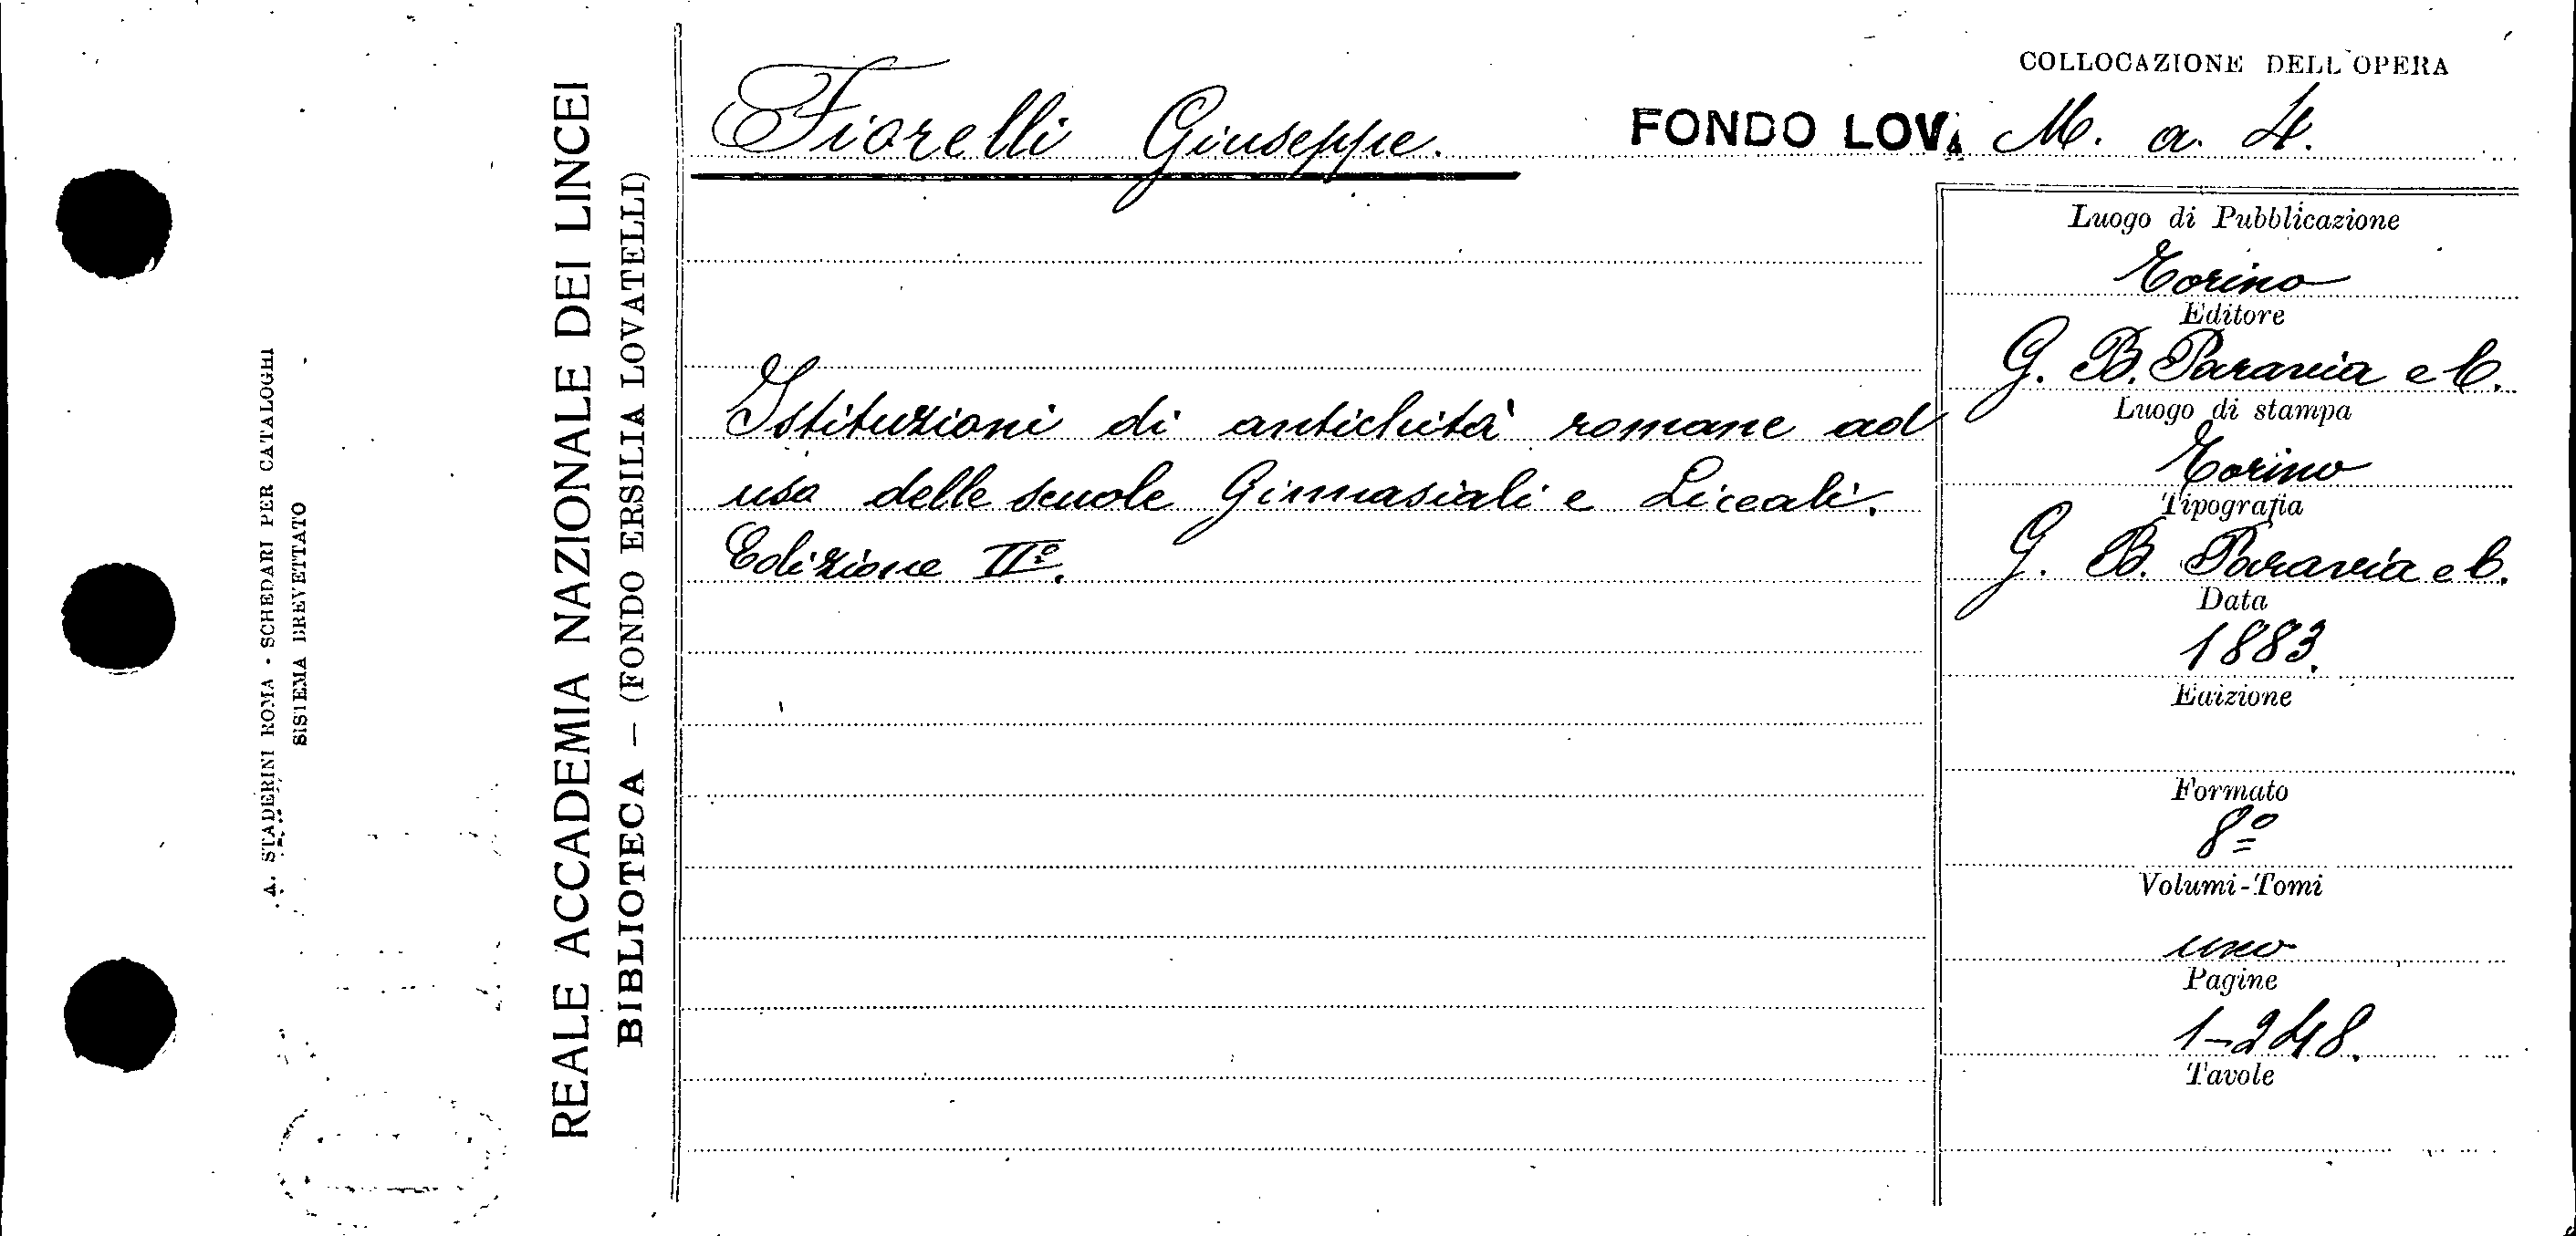 A. STADERINI ROMA - SCHEDARI PER CATALOGHI
SISTEMA BREVETTATO
REALE ACCADEMIA NAZIONALE DEI LINCEI
BIBLIOTECA — (FONDO ERSILIA LOVATELLI)
Fiorelli Giuseppe.
Istituzioni di antichità romane ad
uso delle scuole Ginnasiali e Liceali.
Edizione IIª.
COLLOCAZIONE DELL'OPERA
FONDO LOV. M. a. 4.
Luogo di Pubblicazione
Torino
Editore
G. B. Paravia e C.
Luogo di stampa
Torino
Tipografia
G. B. Paravia e C.
Data
1883.
Edizione
Formato
8º
Volumi-Tomi
uno
Pagine
1-248.
Tavole